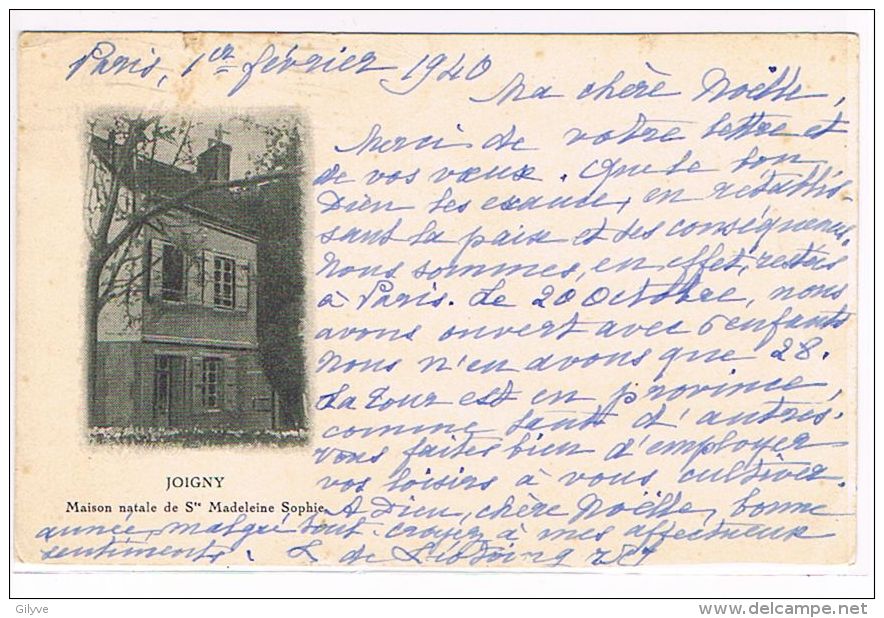 Paris, 1er février 1940
Ma chère Noëlle,
Merci de votre lettre et
de vos vœux. Que le bon
Dieu les exauce, en rétablis
sant la paix et des conséquences.
Nous sommes, en effet, restées
à Paris. Le 20 Octobre, nous
avons ouvert avec 6 enfants
Nous n'en avons que 28.
La Tour est en province,
comme tant d'autres.
vous faites bien d'employer
vos loisirs à vous cultiver.
A Dieu, chère Noëlle, bonne
année, malgré tout. croyez à mes affectueux
sentiments. L de
JOIGNY
Maison natale de Ste Madeleine Sophie
Gilyve
www.delcampe.net